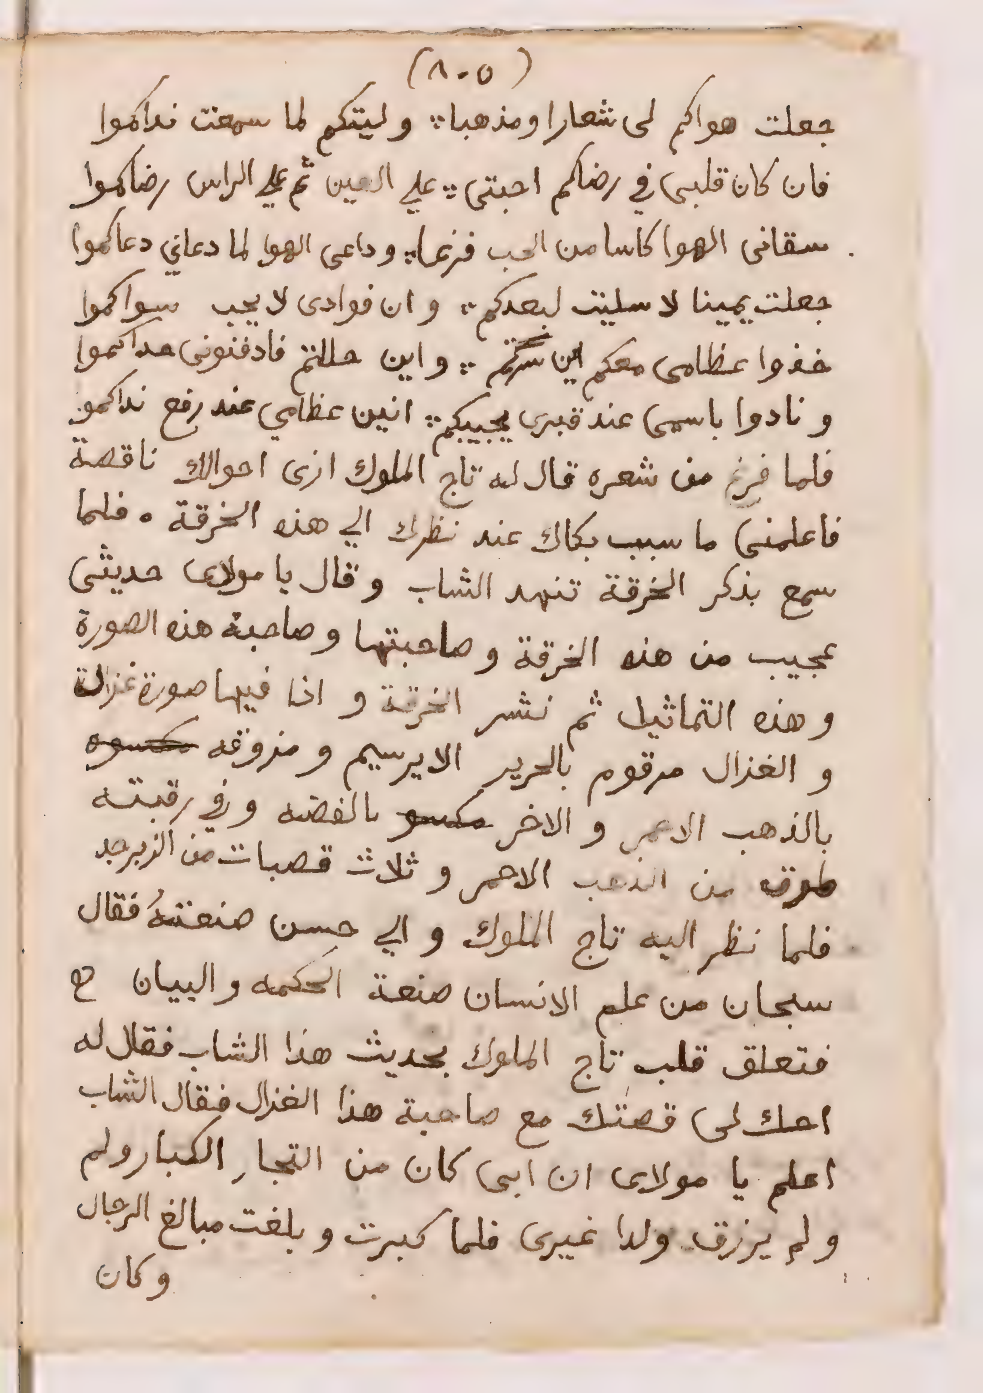 (٨٠٥)
جعلت هواكم لى شعارا ومذهبا؞ وليتكم لما سمعت نداكموا
فان كان قلبى في رضاكم احبتى؞ علي العين ثم علي الراس رضاكموا
سقانى الهوا كاسا من الحب فزعا؞ وداعى الهوا لما دعاني دعاكموا
جعلت يمينا لا سليت لبعدكم؞ وان فوادى لا يحب سواكموا
خذوا عظامى معكم اين سرتم؞ واين حللتم فادفنونى حداكموا
ونادوا باسمى عند قبرى يجيبكم؞ انين عظامي عند رفع نداكمو
فلما فرغ من شعره قال له تاج الملوك ارى احوالك ناقصة
فاعلمنى ما سبب بكاك عند نظرك الي هذه الخرقة ٠ فلما
سمع بذكر الخرقة تنهد الشاب وقال يا مولاى حديثى
عجيب من هذه الخرقة وصاحبتها وصاحبة هذه الصورة
وهذه التماثيل ثم نشر الخرقة و اذا فيها صورة غزالة
و الغزال مرقوم بالحرير الابرسيم و مزوقه
بالذهب الاحمر و الاخر بالفضه وفي رقبته
طوق من الذهب الاحمر و ثلاث قصبات من الزبرجد
فلما نظر اليه تاج الملوك و الي حسن صنعته فقال
سبحان من علم الانسان صنعة الحكمه والبيان
فتعلق قلب تاج الملوك بحديث هذا الشاب فقال له
احك لى قصتك مع صاحبة هذا الغزال فقال الشاب
اعلم يا مولاى ان ابى كان من التجار الكبار ولم
و لم يرزق ولدا غيرى فلما كبرت و بلغت مبالغ الرجال
وكان